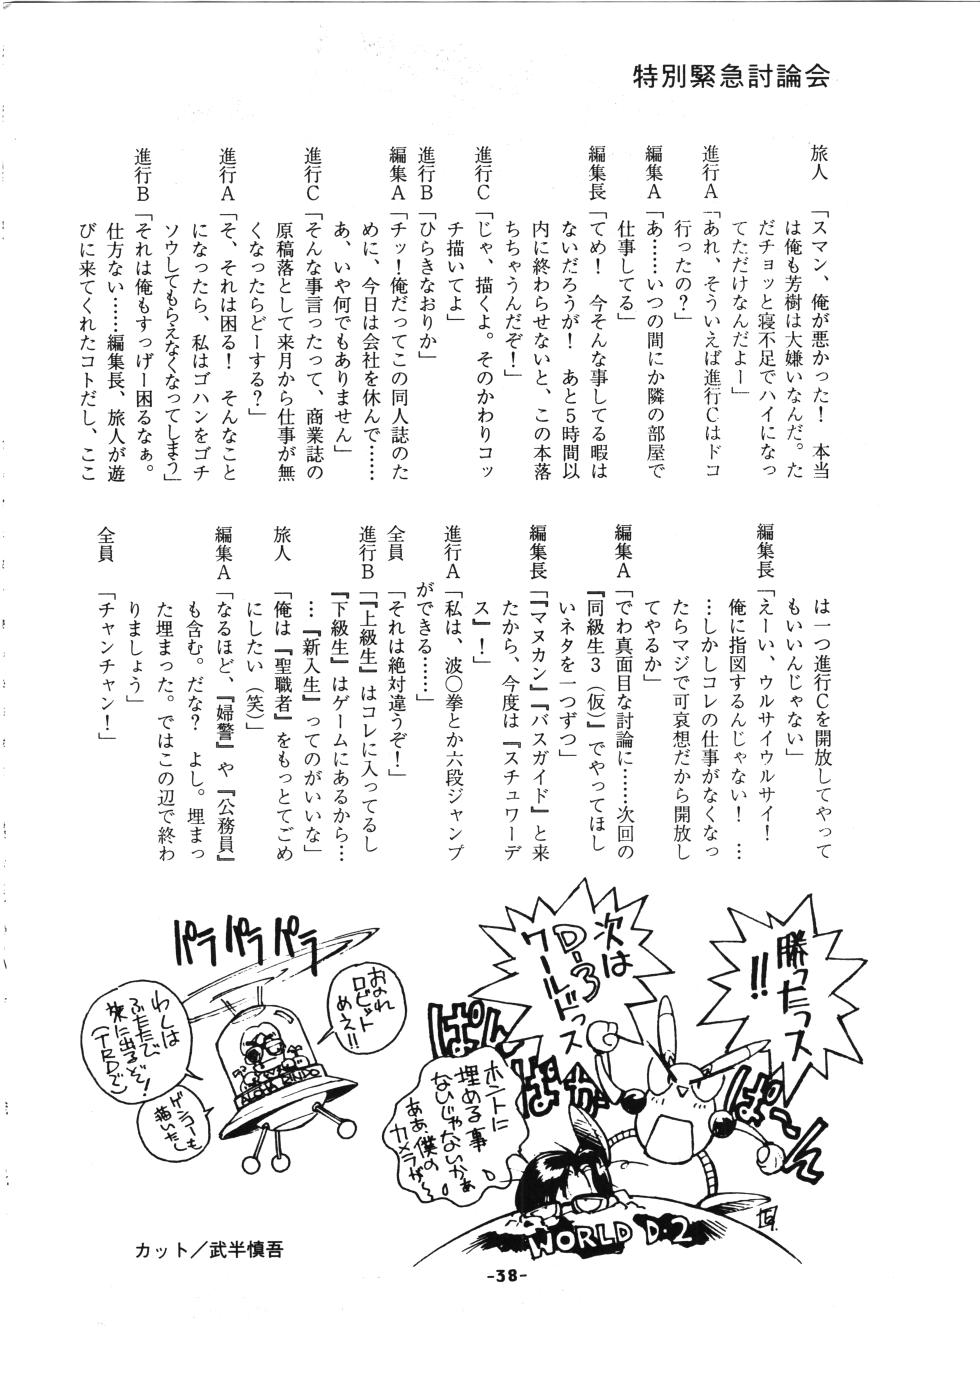 特別緊急討論会
旅人「スマン、俺が悪かった！　本当
は俺も芳樹は大嫌いなんだ。た
だチョッと寝不足でハイになっ
てただけなんだよー」
進行A「あれ、そういえば進行Cはドコ
行ったの？」
編集A「あ……いつの間にか隣の部屋で
仕事してる」
編集長「てめ！　今そんな事してる暇は
ないだろうが！　あと５時間以
内に終わらせないと、この本落
ちちゃうんだぞ！」
進行C「じゃ、描くよ。そのかわりコッ
チ描いてよ」
進行B「ひらきなおりか」
編集A「チッ！俺だってこの同人誌のた
めに、今日は会社を休んで……
あ、いや何でもありません」
進行C「そんな事言ったって、商業誌の
原稿落として来月から仕事が無
くなったらどーする？」
進行A「そ、それは困る！　そんなこと
になったら、私はゴハンをゴチ
ソウしてもらえなくなってしまう」
進行B「それは俺もすっげー困るなぁ。
仕方ない……編集長、旅人が遊
びに来てくれたコトだし、ここ
は一つ進行Cを開放してやって
もいいんじゃない」
編集長「えーい、ウルサイウルサイ！
俺に指図するんじゃない！　…
…しかしコレの仕事がなくなっ
たらマジで可哀想だから開放し
てやるか」
編集A「でわ真面目な討論に……次回の
『同級生３（仮）』でやってほし
いネタを一つずつ」
編集長「『マヌカン』『バスガイド』と来
たから、今度は『スチュワーデ
ス』！」
進行A「私は、波〇拳とか六段ジャンプ
ができる……」
全員「それは絶対違うぞ！」
進行B「『上級生』はコレに入ってるし
『下級生』はゲームにあるから…
…『新入生』ってのがいいな」
旅人「俺は『聖職者』をもっとてごめ
にしたい（笑）」
編集A「なるほど、『婦警』や『公務員』
も含む。だな？　よし。埋まっ
た埋まった。ではこの辺で終わ
りましょう」
全員「チャンチャン！」
勝ったっス!!
次は
D-3
ワールドっス
ぱーん
ぱかっ
ぱん
ホントに
埋める事
ないじゃないかぁ
ああ、僕の
カメラが〜
WORLD D・2
パラ パラ パラ
おのれ
ロビット
めえ!!
わしは
ふたたび
旅に出るぞ!
(TRDで)
ゲンコーも
描いたし
カット／武半慎吾
-38-